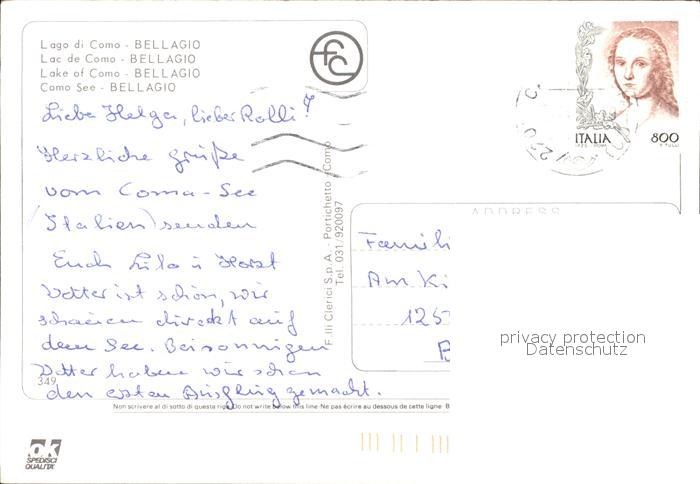 Lago di Como - BELLAGIO
Lac de Como - BELLAGIO
Lake of Como - BELLAGIO
Como See - BELLAGIO
Liebe Helga, lieber Rolli!
Herzliche grüße
vom Coma-See
(Italien) senden
Euch Lilo u Horst
Wetter ist schön, wir
schauen direkt auf
den See. Bei sonnigen
Wetter haben wir schon
den ersten Ausflug gemacht.
349
F.lli Clerici S.p.A. - Portichetto - Como
Tel. 031/920097
ITALIA 800
ADDRESS
Famili
Am Ki
125
B
privacy protection
Datenschutz
Non scrivere al di sotto di questa riga Do not write below this line-Ne pas écrire au dessous de cette ligne- B
ok
SPEDISCI
QUALITA'